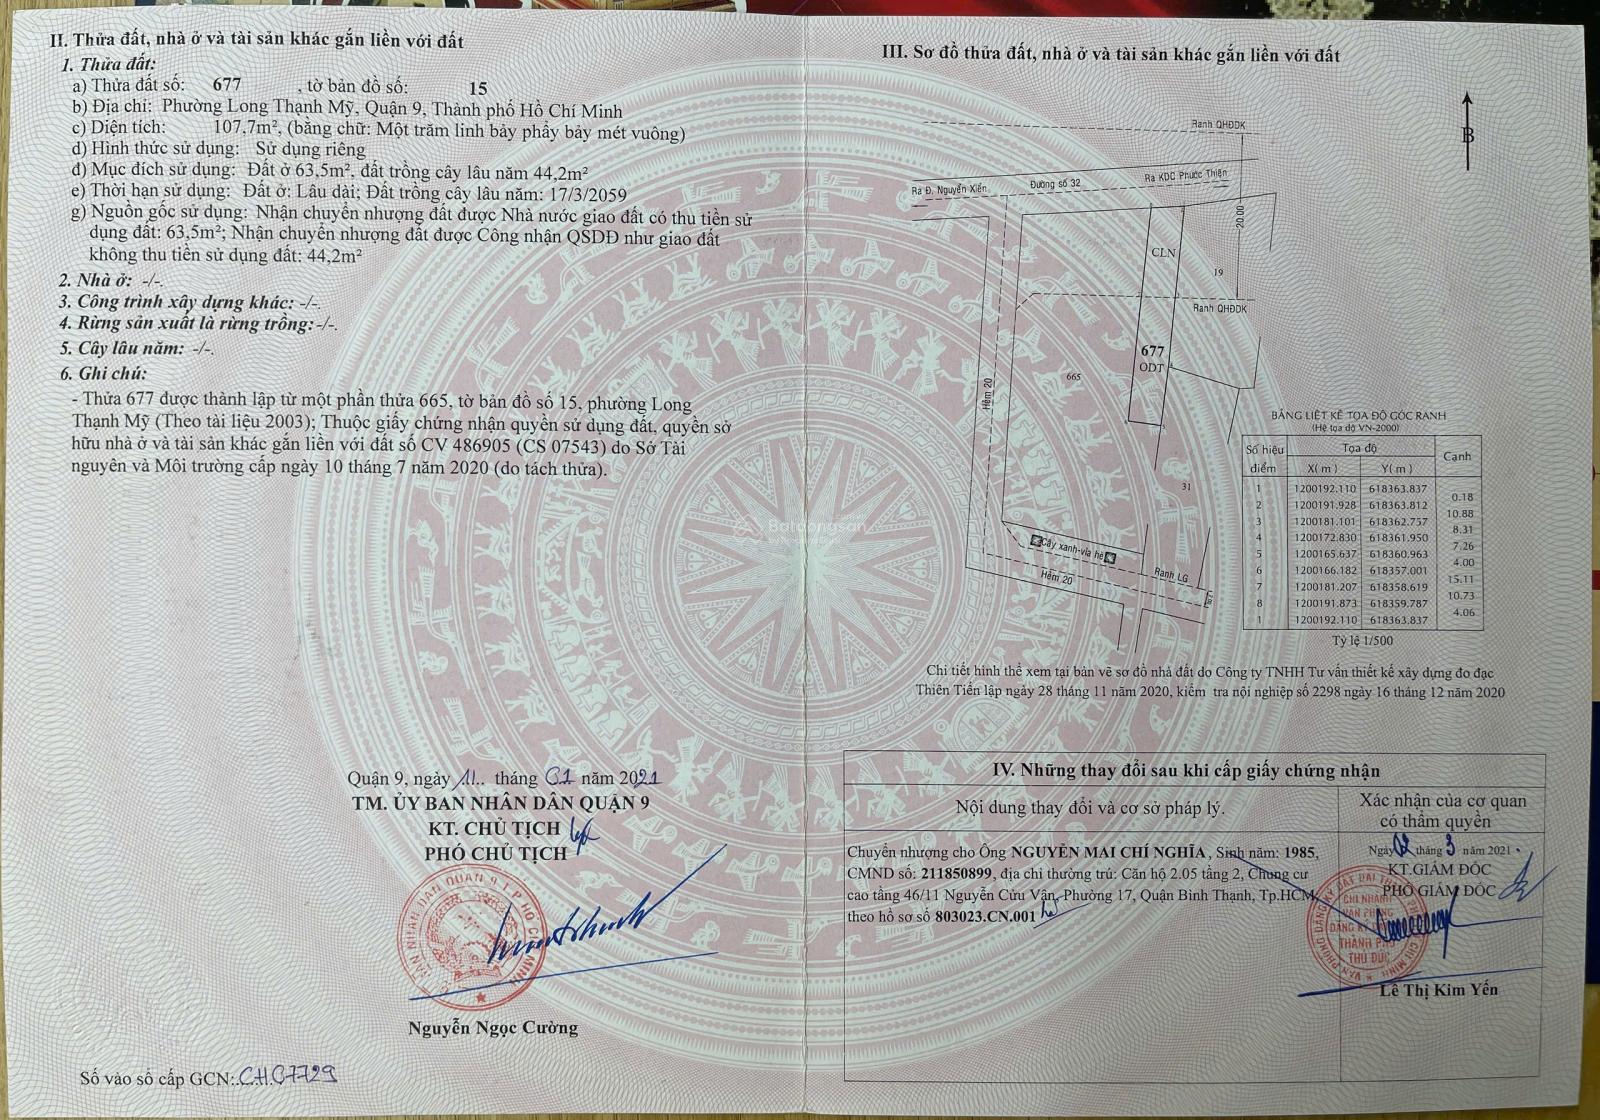 II. Thửa đất, nhà ở và tài sản khác gắn liền với đất
1. Thửa đất:
a) Thửa đất số: 677 , tờ bản đồ số: 15
b) Địa chỉ: Phường Long Thạnh Mỹ, Quận 9, Thành phố Hồ Chí Minh
c) Diện tích: 107,7m², (bằng chữ: Một trăm linh bảy phẩy bảy mét vuông)
d) Hình thức sử dụng: Sử dụng riêng
đ) Mục đích sử dụng: Đất ở 63,5m², đất trồng cây lâu năm 44,2m²
e) Thời hạn sử dụng: Đất ở: Lâu dài; Đất trồng cây lâu năm: 17/3/2059
g) Nguồn gốc sử dụng: Nhận chuyển nhượng đất được Nhà nước giao đất có thu tiền sử
dụng đất: 63,5m²; Nhận chuyển nhượng đất được Công nhận QSDĐ như giao đất
không thu tiền sử dụng đất: 44,2m²
2. Nhà ở: -/-.
3. Công trình xây dựng khác: -/-.
4. Rừng sản xuất là rừng trồng:-/-.
5. Cây lâu năm: -/-.
6. Ghi chú:
- Thửa 677 được thành lập từ một phần thửa 665, tờ bản đồ số 15, phường Long
Thạnh Mỹ (Theo tài liệu 2003); Thuộc giấy chứng nhận quyền sử dụng đất, quyền sở
hữu nhà ở và tài sản khác gắn liền với đất số CV 486905 (CS 07543) do Sở Tài
nguyên và Môi trường cấp ngày 10 tháng 7 năm 2020 (do tách thửa).
Quận 9, ngày 11 tháng 01 năm 2021
TM. ỦY BAN NHÂN DÂN QUẬN 9
KT. CHỦ TỊCH
PHÓ CHỦ TỊCH
Nguyễn Ngọc Cường
Số vào sổ cấp GCN: CH07729
III. Sơ đồ thửa đất, nhà ở và tài sản khác gắn liền với đất
B
Ranh QHĐDK
Ra Đ. Nguyễn Xiển
Đường số 32
Ra KDC Phước Thiện
20.00
CLN
19
Ranh QHĐDK
677
ODT
665
Hẻm 20
31
Cây xanh-vỉa hè
Hẻm 20
Ranh LG
BẢNG LIỆT KÊ TỌA ĐỘ GÓC RANH
(Hệ tọa độ VN-2000)
Số hiệu điểm Tọa độ Cạnh
X( m ) Y( m )
1 1200192.110 618363.837
0.18
2 1200191.928 618363.812
10.88
3 1200181.101 618362.757
8.31
4 1200172.830 618361.950
7.26
5 1200165.637 618360.963
4.00
6 1200166.182 618357.001
15.11
7 1200181.207 618358.619
10.73
8 1200191.873 618359.787
4.06
1 1200192.110 618363.837
Tỷ lệ 1/500
Chi tiết hình thể xem tại bản vẽ sơ đồ nhà đất do Công ty TNHH Tư vấn thiết kế xây dựng đo đạc
Thiên Tiến lập ngày 28 tháng 11 năm 2020, kiểm tra nội nghiệp số 2298 ngày 16 tháng 12 năm 2020
IV. Những thay đổi sau khi cấp giấy chứng nhận
Nội dung thay đổi và cơ sở pháp lý.
Xác nhận của cơ quan
có thẩm quyền
Chuyển nhượng cho Ông NGUYỄN MAI CHÍ NGHĨA, Sinh năm: 1985,
CMND số: 211850899, địa chỉ thường trú: Căn hộ 2.05 tầng 2, Chung cư
cao tầng 46/11 Nguyễn Cửu Vân, Phường 17, Quận Bình Thạnh, Tp.HCM,
theo hồ sơ số 803023.CN.001
Ngày 02 tháng 3 năm 2021
KT.GIÁM ĐỐC
PHÓ GIÁM ĐỐC
CHI NHÁNH
VĂN PHÒNG
ĐĂNG KÝ
THÀNH PHỐ
THỦ ĐỨC
Lê Thị Kim Yến
Batdongsan